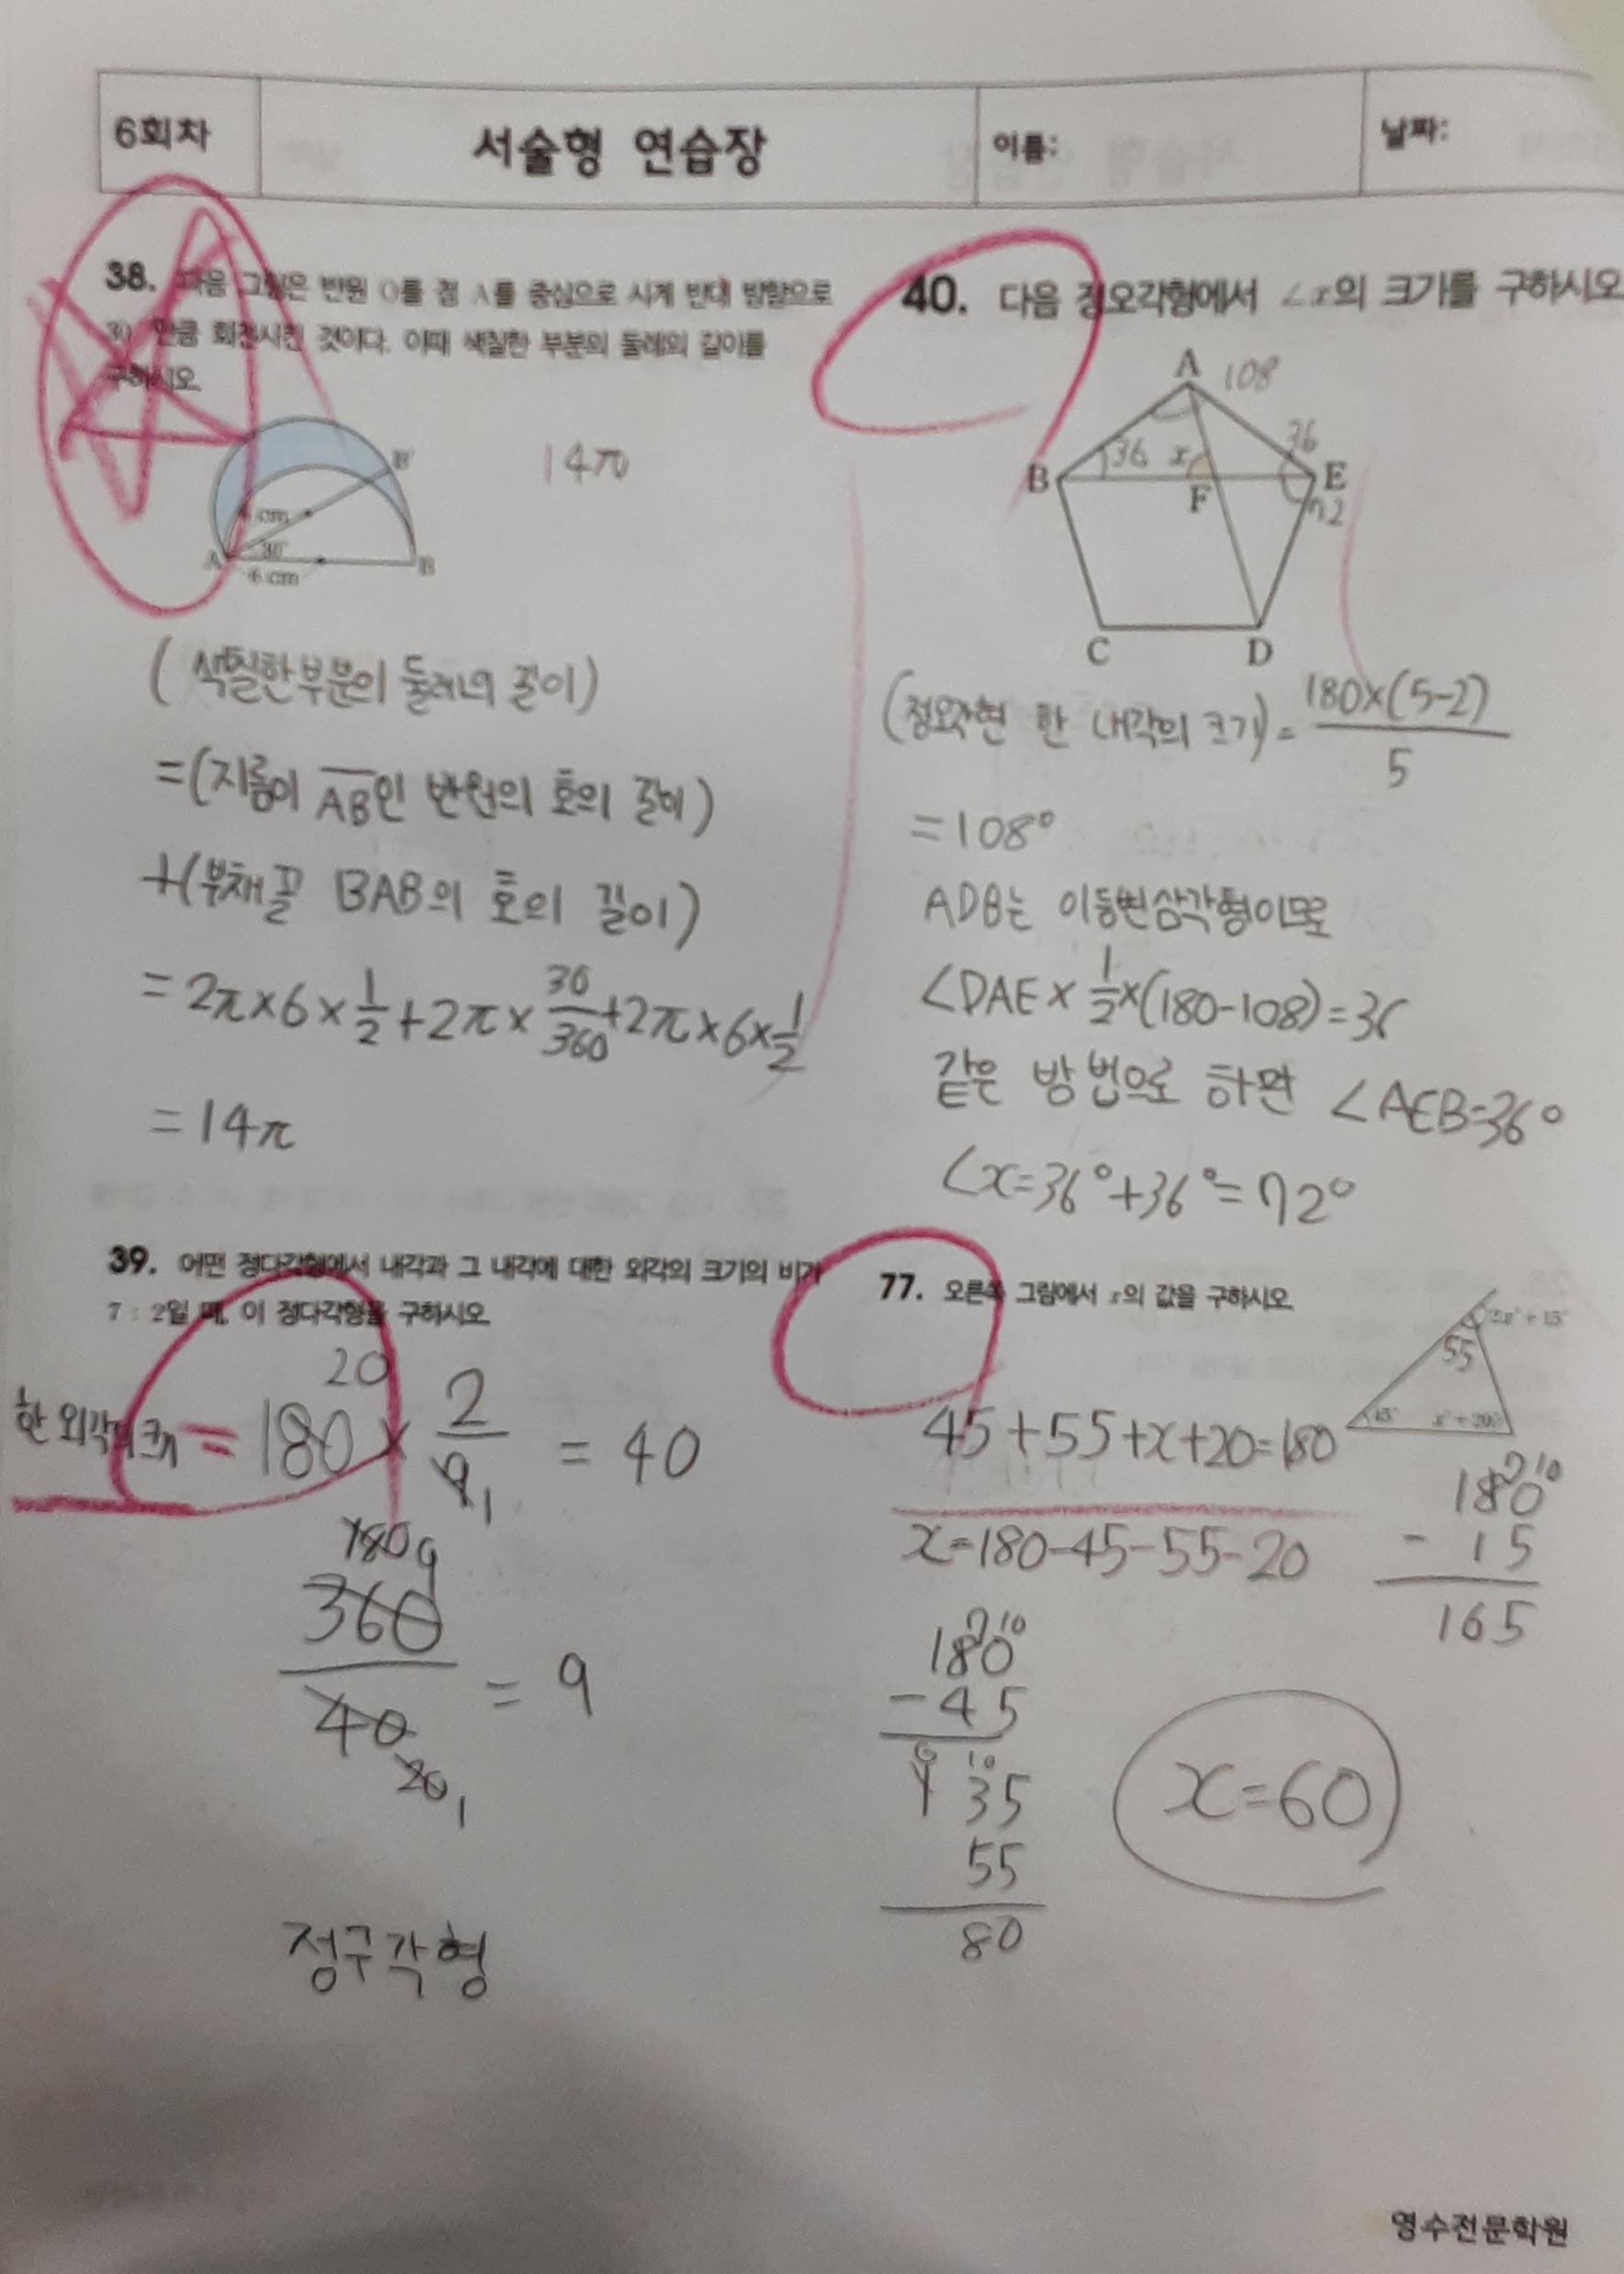 6회차
서술형 연습장
이름:
날짜:
38. 다음 그림은 반원 O를 점 A를 중심으로 시계 반대 방향으로
30°만큼 회전시킨 것이다. 이때 색칠한 부분의 둘레의 길이를
구하시오.
B'
cm
30°
A
B
6 cm
14π
(색칠한 부분의 둘레의 길이)
=(지름이 AB인 반원의 호의 길이)
+(부채꼴 BAB의 호의 길이)
=2π×6×1/2+2π×30/360+2π×6×1/2
=14π
39. 어떤 정다각형에서 내각과 그 내각에 대한 외각의 크기의 비가
7 : 2일 때, 이 정다각형을 구하시오.
20
한 외각의 크기 = 180 × 2/9 = 40
1
180 9
360/40 = 9
20 1
정구각형
40. 다음 정오각형에서 ∠x의 크기를 구하시오
A
108
36
36
x
B
E
F
72
C
D
(정오각현 한 내각의 크기)= 180×(5-2)/5
=108°
ADB는 이등변삼각형이므로
∠DAE×1/2×(180-108)=36
같은 방법으로 하면 ∠AEB=36°
∠x=36°+36°=72°
77. 오른쪽 그림에서 x의 값을 구하시오.
2x°+15°
55
45°
x°+20°
45+55+x+20=180
x=180-45-55-20
7 10
180
- 15
165
7 10
180
-45
10
135
55
80
x=60
영수전문학원